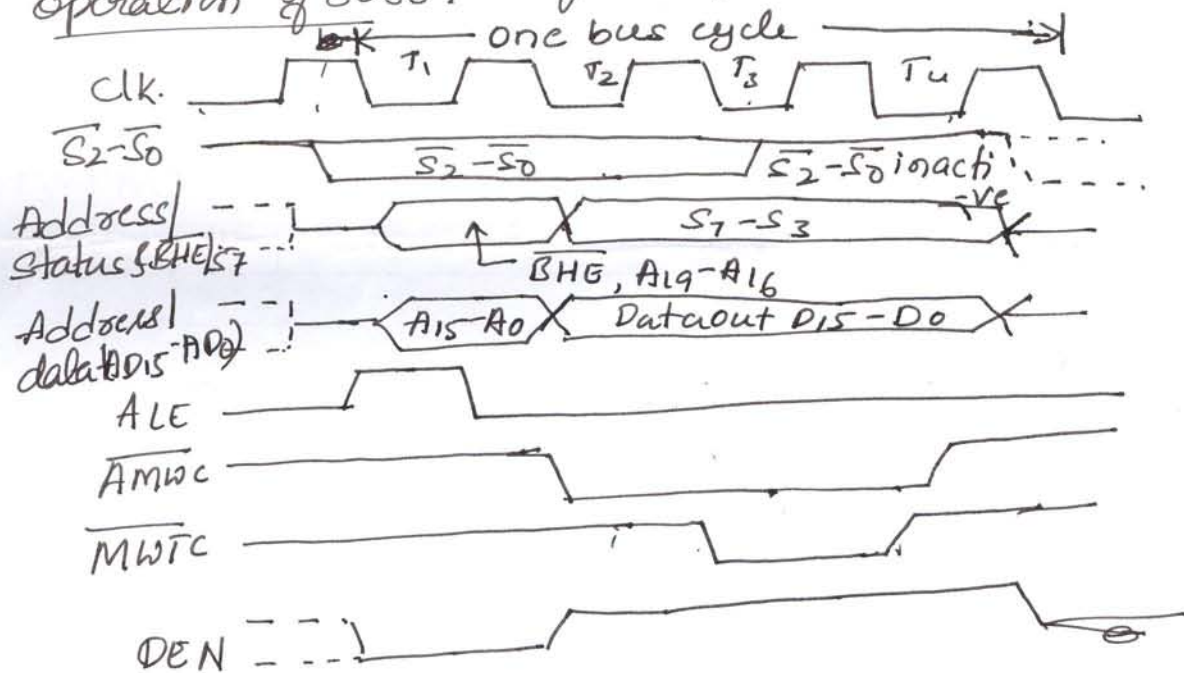 operation of 8086.
one bus cycle
T1 T2 T3 T4
Clk.
S̅2̅-S̅0̅
S̅2̅-S̅0̅
S̅2̅-S̅0̅ inacti
-ve
Address/
Status & B̅H̅E̅/S7
S7-S3
B̅H̅E̅, A19-A16
Address/
data(AD15-AD0)
A15-A0
Dataout D15-D0
ALE
A̅M̅W̅C̅
M̅W̅T̅C̅
DEN